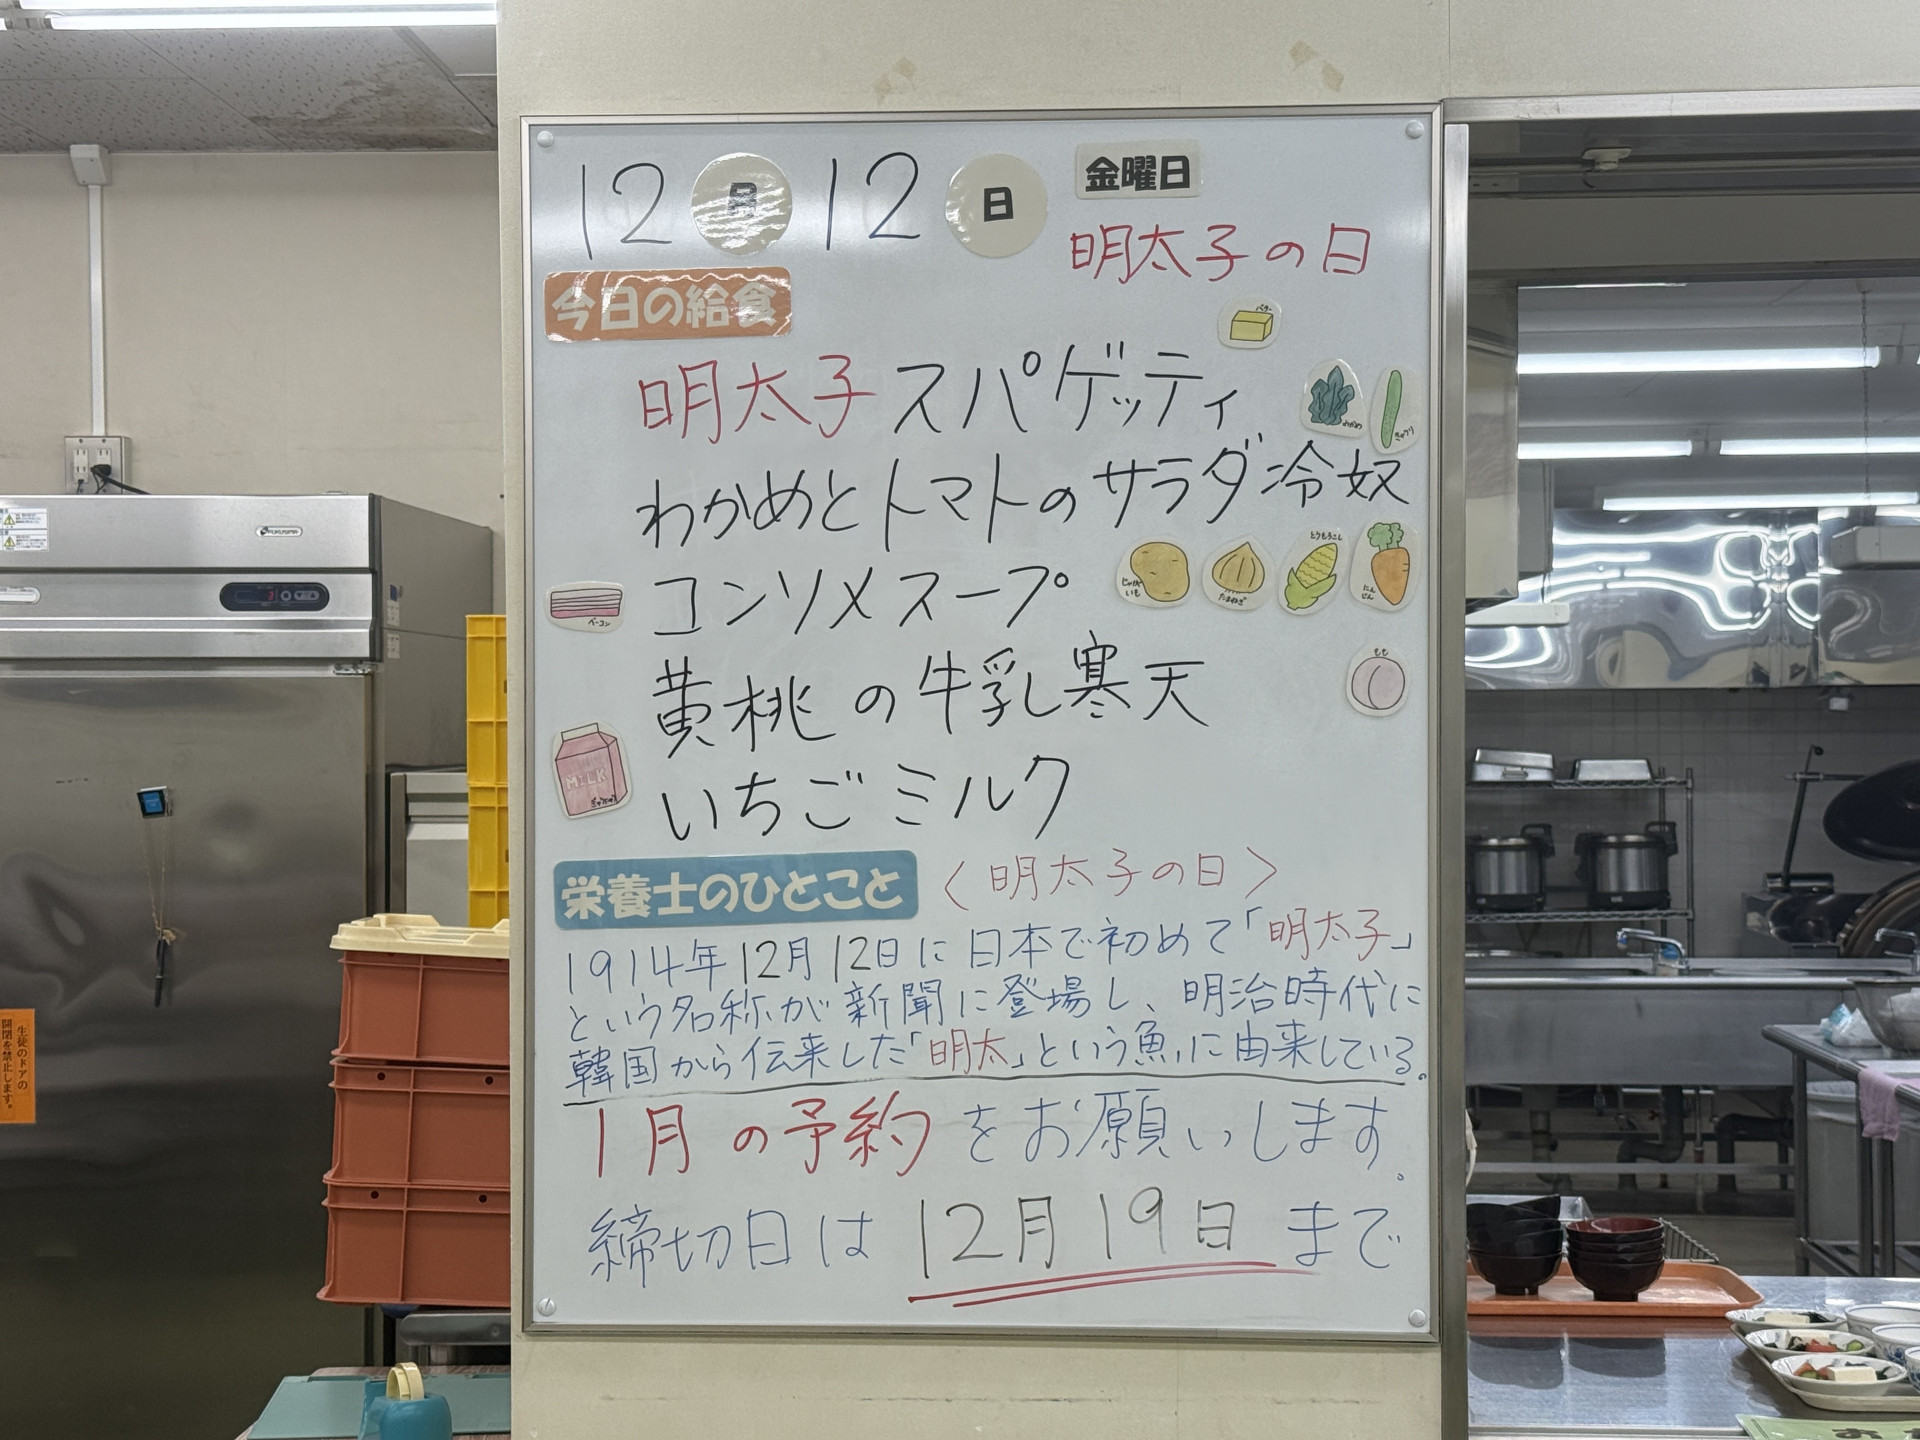 12月12日 金曜日
明太子の日
今日の給食
バター
明太子スパゲッティ
わかめ
きゅうり
わかめとトマトのサラダ冷奴
ベーコン
コンソメスープ
じゃがいも
たまねぎ
とうもろこし
にんじん
黄桃の牛乳寒天
もも
いちごミルク
MILK
ぎゅうにゅう
栄養士のひとこと
〈明太子の日〉
1914年12月12日に日本で初めて「明太子」
という名称が新聞に登場し、明治時代に
韓国から伝来した「明太」という魚に由来している。
1月の予約をお願いします。
締切日は12月19日まで
生徒のドアの
開閉を禁止します。